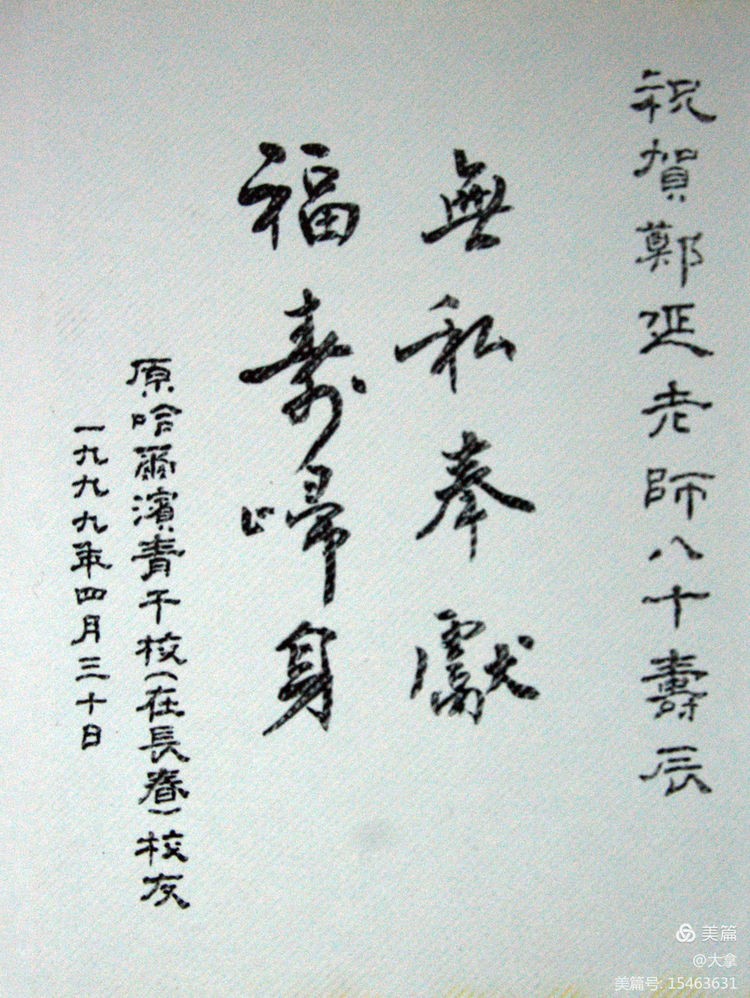 祝賀鄭延老師八十壽辰
無私奉獻
福壽歸身
原哈爾濱青干校(在長春)校友
一九九九年四月三十日
美篇
@大拿
美篇号: 15463631